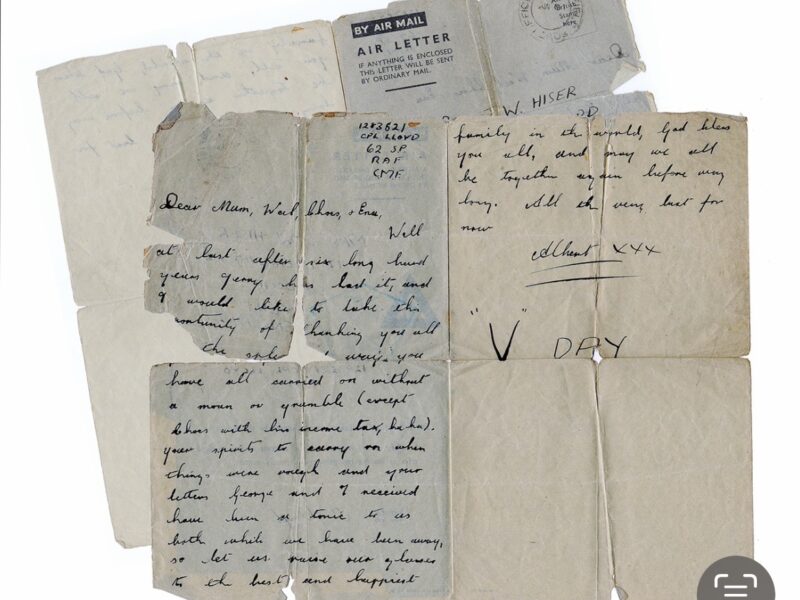 BY AIR MAIL
AIR LETTER
IF ANYTHING IS ENCLOSED
THIS LETTER WILL BE SENT
BY ORDINARY MAIL.
W. HISER
1283621
CPL LLOYD
62 S.P.
RAF
CMF
Dear Mum, Wal, Chos, & Ena,
Well
at last after six long hard
years Jerry has had it, and
I would like to take this
opportunity of thanking you all
the way you
have all carried on without
a moan or grumble (except
Chos with his income tax, ha ha).
your spirits to carry on when
things were rough and your
letters George and I received
have been a tonic to us
both while we have been away,
so let us raise our glasses
to the best and happiest
family in the world, God bless
you all, and may we all
be together again before very
long. All the very best for
now
Albert xxx
"V" DAY